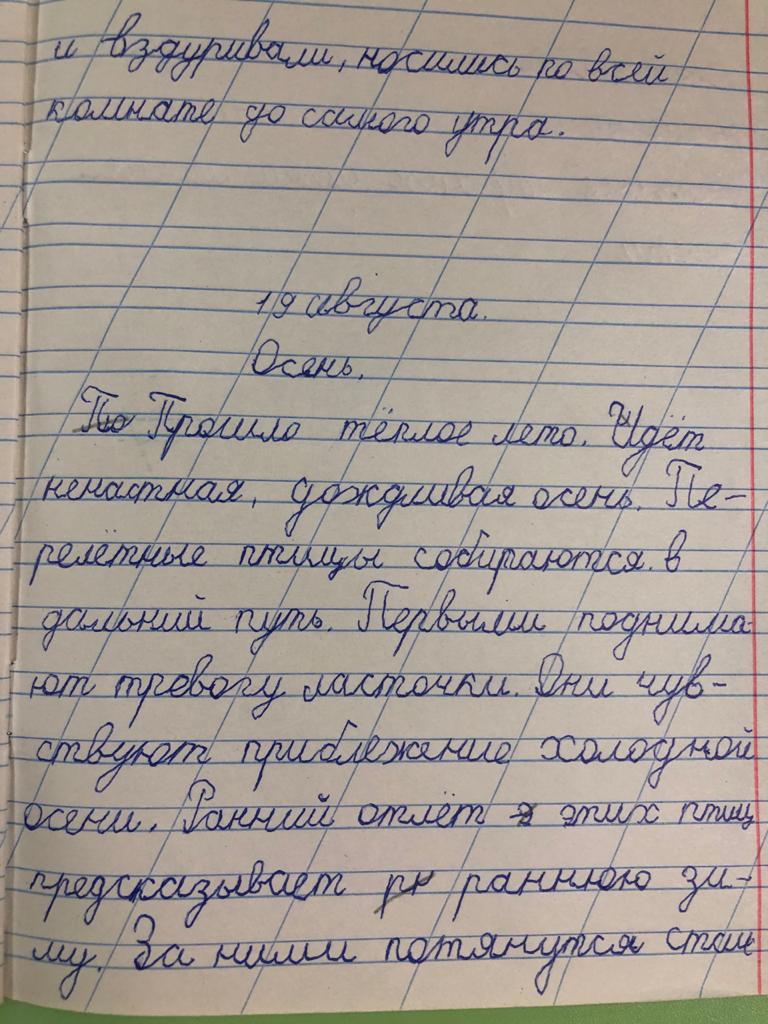 и вздуривали, носились по всей
комнате до самого утра.
19 августа.
Осень.
По Прошло тёплое лето. Идёт
ненастная, дождливая осень. Пе-
релётные птицы собираются в
дальний путь. Первыми поднима-
ют тревогу ласточки. Они чув-
ствуют приближение холодной
осени. Ранний отлёт этих птиц
предсказывает раннюю зи-
му. За ними потянутся стаи